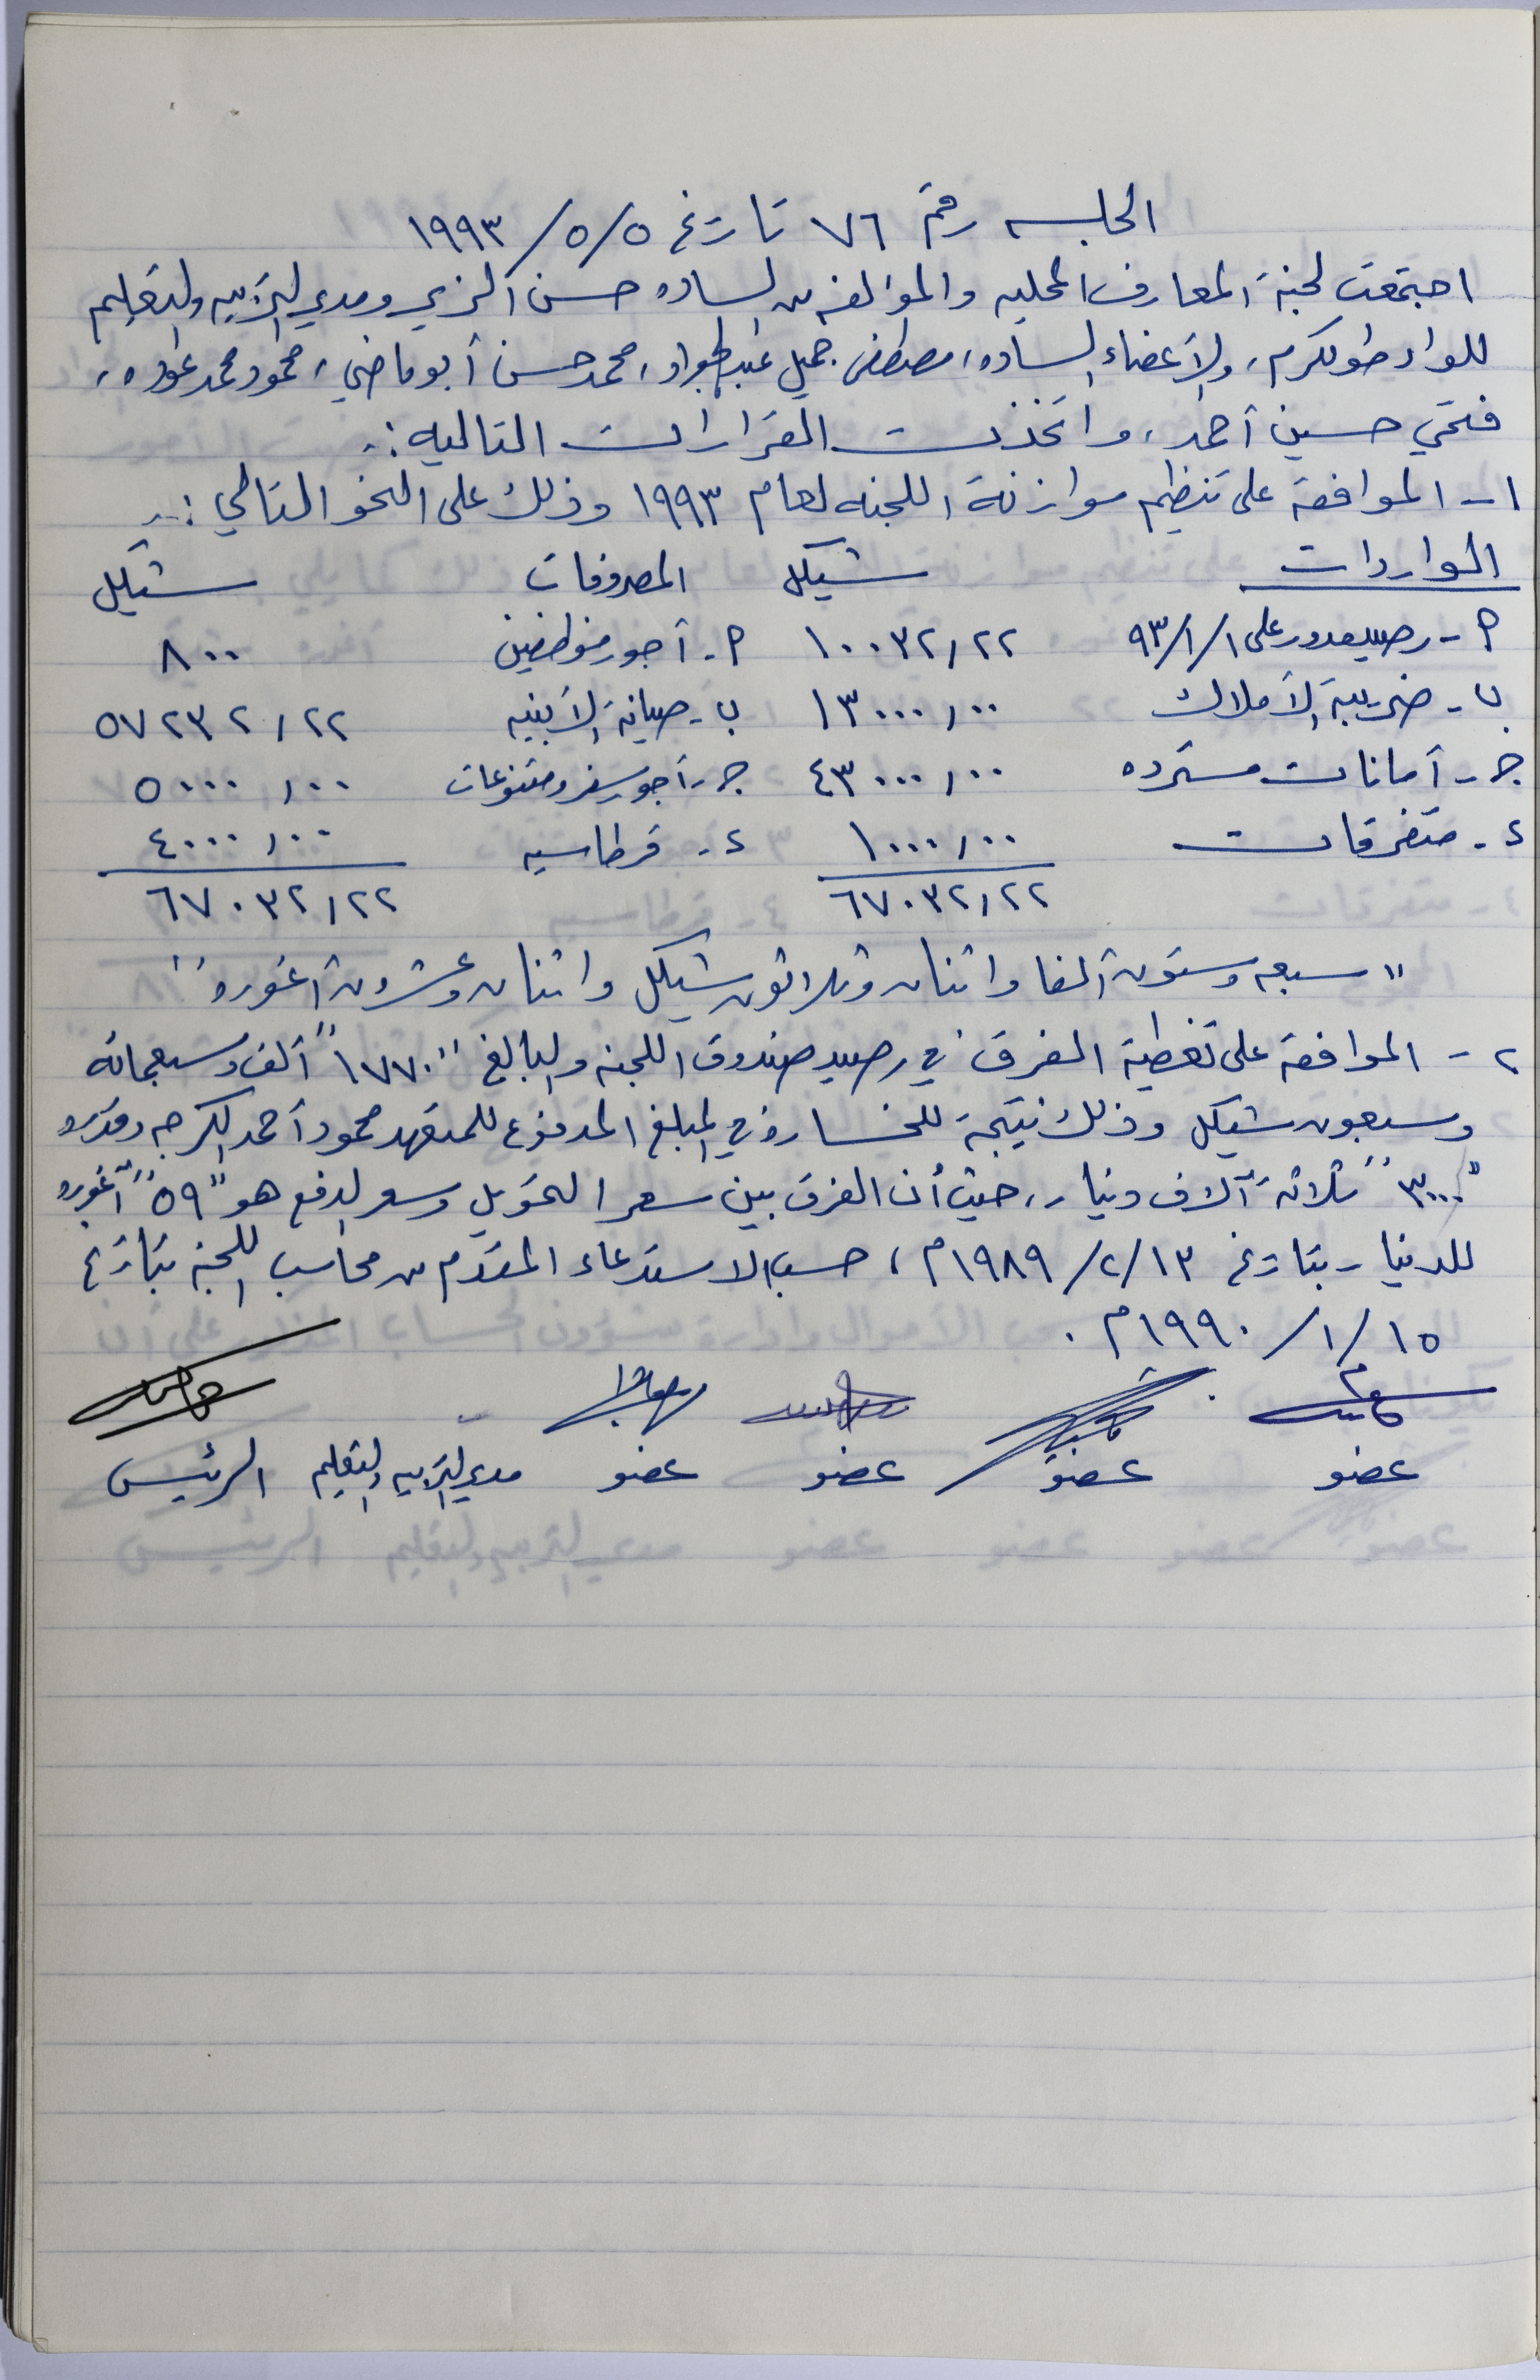 الجلسه رقم ٧٦ تاريخ ٥/٥/١٩٩٣
اجتمعت لجنة المعارف المحليه والمؤلفه من الساده حسن الزي ومدير التربيه والتعليم
للواء طولكرم، والأعضاء الساده، مصطفى جميل عبد الجواد، محمد حسن أبو ماضي، محمود محمد عوده،
فتحي حسين أحمد، واتخذت القرارات التاليه :-
١- الموافقة على تنظيم موازنة اللجنه لعام ١٩٩٣ وذلك على النحو التالي :-
الواردات شيكل المصروفات شيكل
أ- رصيد مدور على ١/١/٩٣ ١٠٠٣٢,٢٢ أ- أجور موظفين ٨٠٠
ب- ضريبة الأملاك ١٣٠٠٠,٠٠ ب- صيانة الأبنيه ٥٧٢٣٢,٢٢
ج- أمانات مسترده ٤٣٠٠٠,٠٠ ج- أجور سفر ومتنوعات ٥٠٠٠,٠٠
د- متفرقات ١٠٠٠,٠٠ د- قرطاسيه ٤٠٠٠,٠٠
٦٧٠٣٢,٢٢ ٦٧٠٣٢,٢٢
"سبعه وستون ألفا واثنان وثلاثون شيكل واثنان وعشرون أغوره"
٢- الموافقة على تغطية الفرق في رصيد صندوق اللجنه والبالغ "١٧٧٠" ألف وسبعمائه
وسبعون شيكل وذلك نتيجة للخسارة في المبلغ المدفوع للمتعهد محمود أحمد وقدره
"٣٠٠٠" ثلاثة آلاف دينار، حيث أن الفرق بين سعر التحويل وسعر الدفع هو "٥٩" أغوره
للدينار بتاريخ ١٣/٢/١٩٨٩م، حسب الاستدعاء المقدم من محاسب اللجنه بتاريخ
١٥/١/١٩٩٠م.
عضو عضو عضو عضو مدير التربيه والتعليم الرئيس